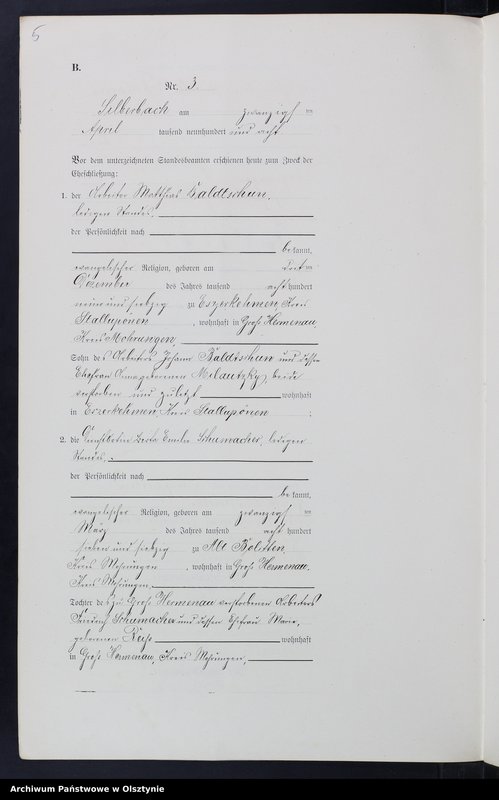 5
B.
Nr. 3.
Silberbach am zwanzigsten
April tausend neunhundert und acht
Vor dem unterzeichneten Standesbeamten erschienen heute zum Zweck der
Eheschließung:
1. der Arbeiter Matthias Baldtschun,
ledigen Standes,
der Persönlichkeit nach
bekannt,
evangelischer Religion, geboren am
Dezember des Jahres tausend acht hundert
neun und siebzig zu Eszerkehmen, Kreis
Stallupönen, wohnhaft in Groß Hermenau,
Kreis Mohrungen,
Sohn des Arbeiters Johann Baldtschun und dessen
Ehefrau geborenen Milautzky, beide
verstorben und zuletzt wohnhaft
in Eszerkehmen, Kreis Stallupönen;
2. die Berta Emilie Schumacher, ledigen
Standes,
der Persönlichkeit nach
bekannt,
evangelischer Religion, geboren am zwanzigsten
März des Jahres tausend acht hundert
sieben und siebzig zu Alt Bolitten,
Kreis Mohrungen, wohnhaft in Groß Hermenau,
Kreis Mohrungen,
Tochter des zu Groß Hermenau verstorbenen Arbeiters
Friedrich Schumacher und dessen Ehefrau
geborenen wohnhaft
in Groß Hermenau, Kreis Mohrungen,
Archiwum Państwowe w Olsztynie